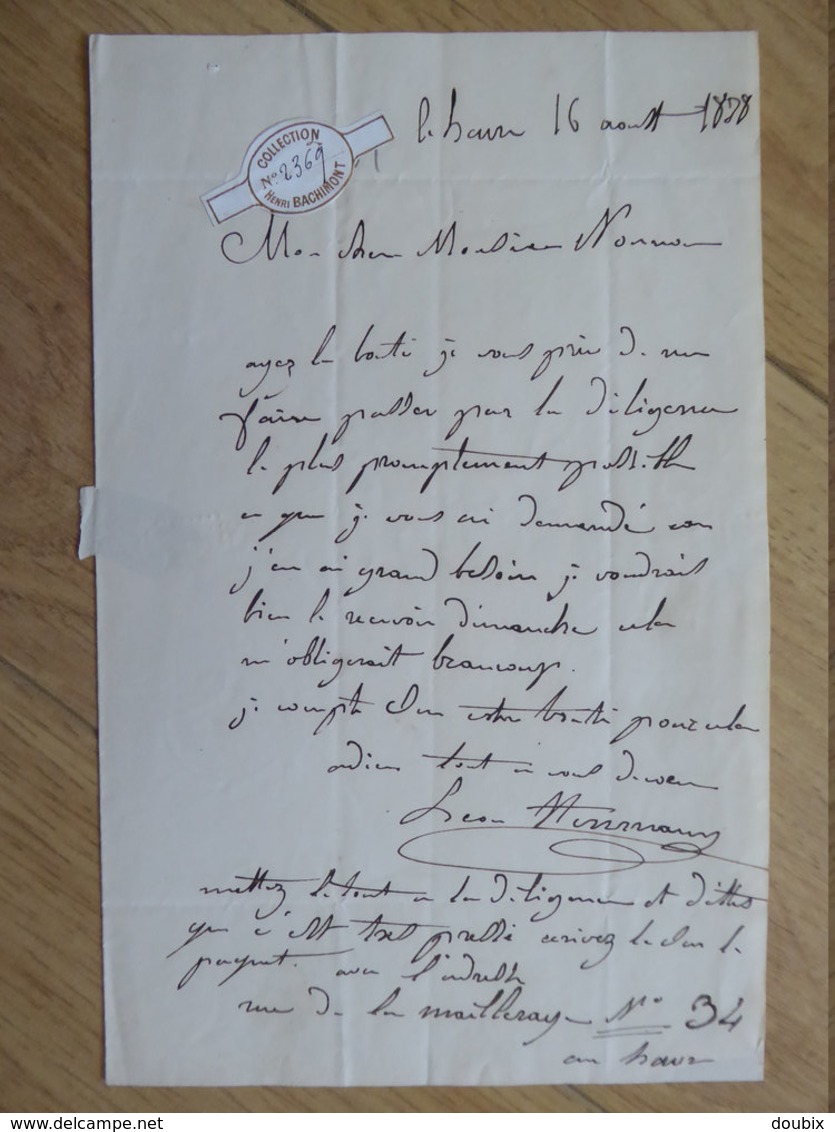 le havre 16 aoust 1838
COLLECTION
No. 2369
HENRI BACHIMONT
Mon cher Monsieur
ayez la bonté je vous prie de me
faire passer par la diligence
le plus promptement possible
ce que je vous ai demandé car
j'en ai grand besoin je voudrais
bien le recevoir dimanche cela
m'obligerait beaucoup.
je compte sur votre bonté pour cela
adieu tout a vous de coeur
Leon Herrmann
mettez le tout a la diligence et dittes
que c'est tres pressé ecrivez le sur le
paquet. avec l'adresse
rue de la mailleraye No 34
au havre
© Delcampe.net
doubix